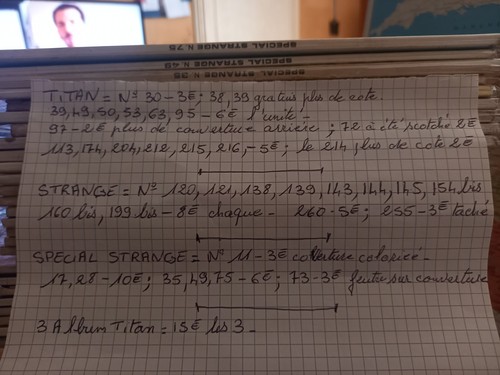 SPECIAL STRANGE N. 75
SPECIAL STRANGE N. 49
SPECIAL STRANGE N. 35
TITAN = N° 30 - 3€ ; 38, 39 gratuis plus de cote
39, 49, 50, 53, 63, 95 - 6€ l'unité -
97 - 2€ plus de couverture arrière ; 72 a été scotché 2€
113, 174, 204, 212, 215, 216, - 5€ ; le 214 plus de cote 2€
STRANGE = N° 120, 121, 138, 139, 143, 144, 145, 154 bis
160 bis, 199 bis - 8€ chaque - 260 - 5€ ; 255 - 3€ taché
SPECIAL STRANGE = N° 11 - 3€ couverture coloriée -
17, 28 - 10€ ; 35, 49, 75 - 6€ ; 73 - 3€ feutre sur couverture
3 Album Titan = 15€ les 3 -